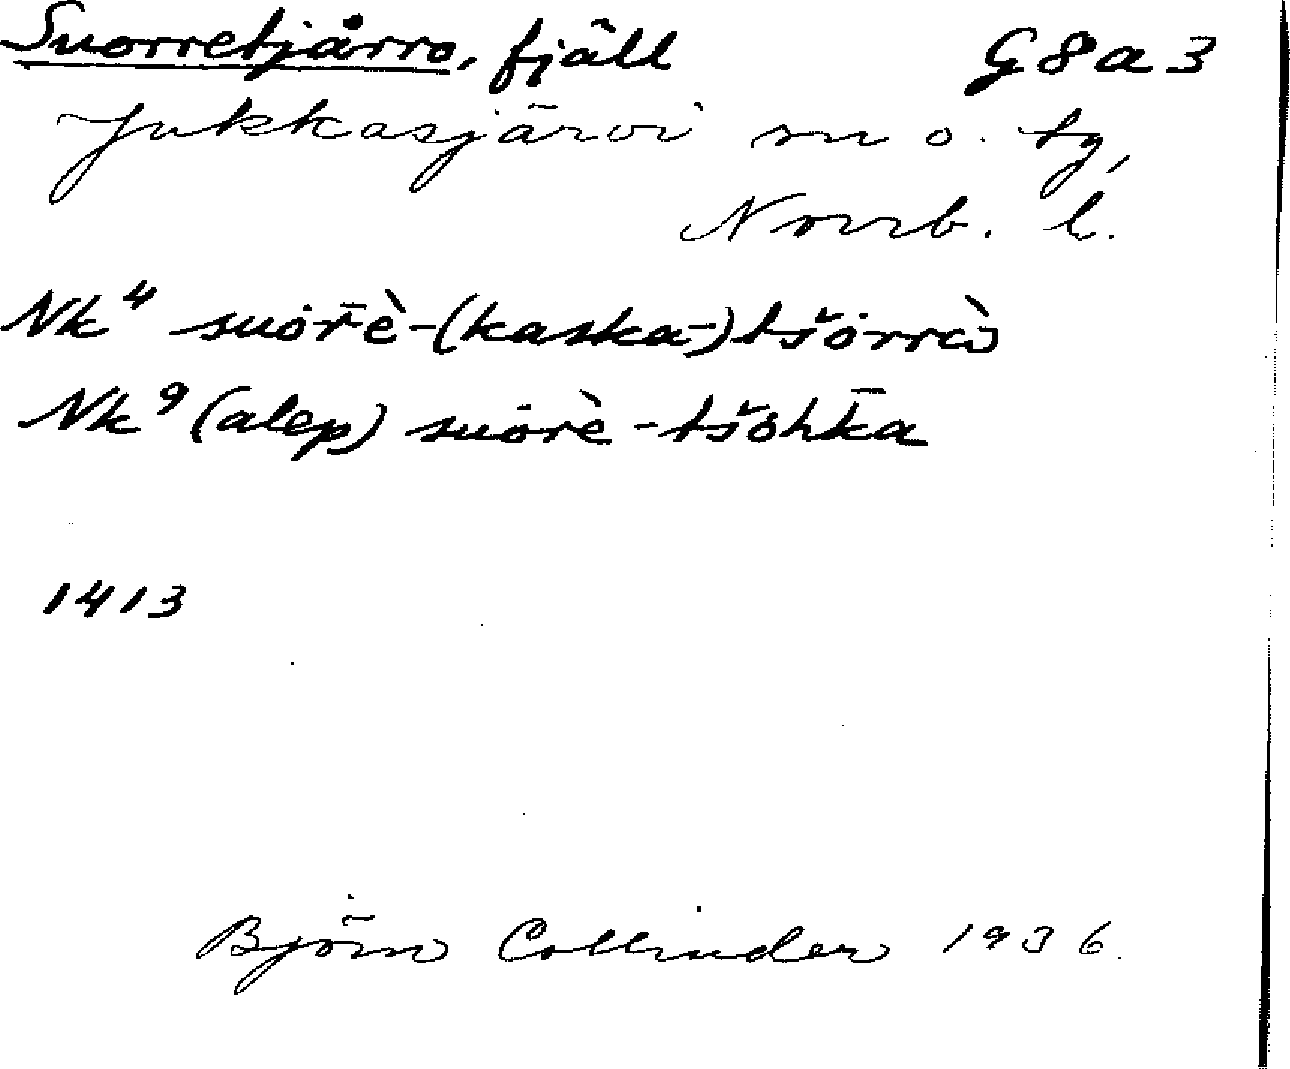 Suorretjårro, fjäll G8a3
Jukkasjärvi sn o. tg,
Norrb. l.
Nk⁴ suȯr̄ė̀-(kaska-)tšȯrrȧ̀
Nk⁹ (alep) suȯrè-tšȯhk̄a
1413
Björn Collinder 1936.